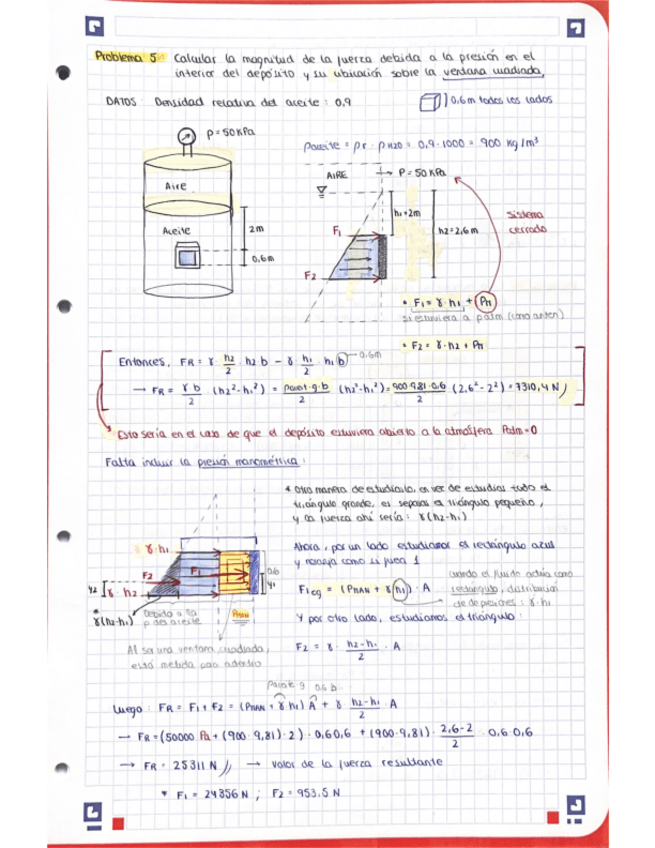 Problema 5: Calcular la magnitud de la fuerza debida a la presión en el
interior del depósito y su ubicación sobre la ventana cuadrada.
DATOS: Densidad relativa del aceite: 0,9
0,6m todos los lados
P=50KPa
ρaceite = ρr · ρH2O = 0,9 · 1000 = 900 kg/m³
Aire
AIRE
P = 50 KPa
Aceite
2m
0,6m
h1=2m
h2=2,6m
F1
F2
Sistema
cerrado
• F1 = γ·h1 + PM
si estuviera a patm (como antes)
• F2 = γ·h2 + PM
Entonces, FR = γ · h2/2 · h2 b - γ · h1/2 · h1 b
0,6m
→ FR = γ b/2 (h2² - h1²) = ρaceit·g·b/2 (h2²-h1²) = 900·9,81·0,6/2 (2,6² - 2²) = 7310,4 N
Esto sería en el caso de que el depósito estuviera abierto a la atmósfera Patm=0
Falta incluir la presión manométrica:
* Otra manera de estudiarlo, en vez de estudiar todo el
triángulo grande, es separar el triángulo pequeño,
y la fuerza ahí sería: γ(h2-h1)
Ahora, por un lado estudiamos el rectángulo azul
y naranja como si fuera 1
γ·h1
F2
F1
0,6
y1
y2
γ·h2
γ(h2-h1)
Debido a la
p del aceite
PMAN
Al ser una ventana cuadrada,
está metida para adentro
F1cg = (PMAN + γ h1) · A
cuando el fluido actúa como
rectángulo, distribución
de presiones: γ·h1
Y por otro lado, estudiamos el triángulo:
F2 = γ · h2-h1/2 · A
ρaceite g 0,6 b
Luego: FR = F1 + F2 = (PMAN + γ h1) A + γ h2-h1/2 · A
→ FR = (50000 Pa + (900·9,81)·2) · 0,6·0,6 + (900·9,81) · 2,6-2/2 · 0,6·0,6
→ FR = 25311 N → valor de la fuerza resultante
* F1 = 24356 N ; F2 = 953,5 N